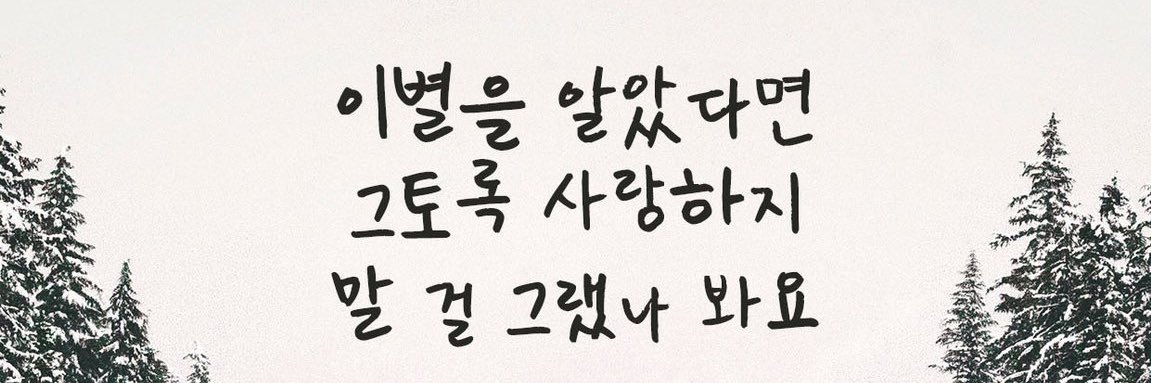 이별을 알았다면
그토록 사랑하지
말 걸 그랬나 봐요